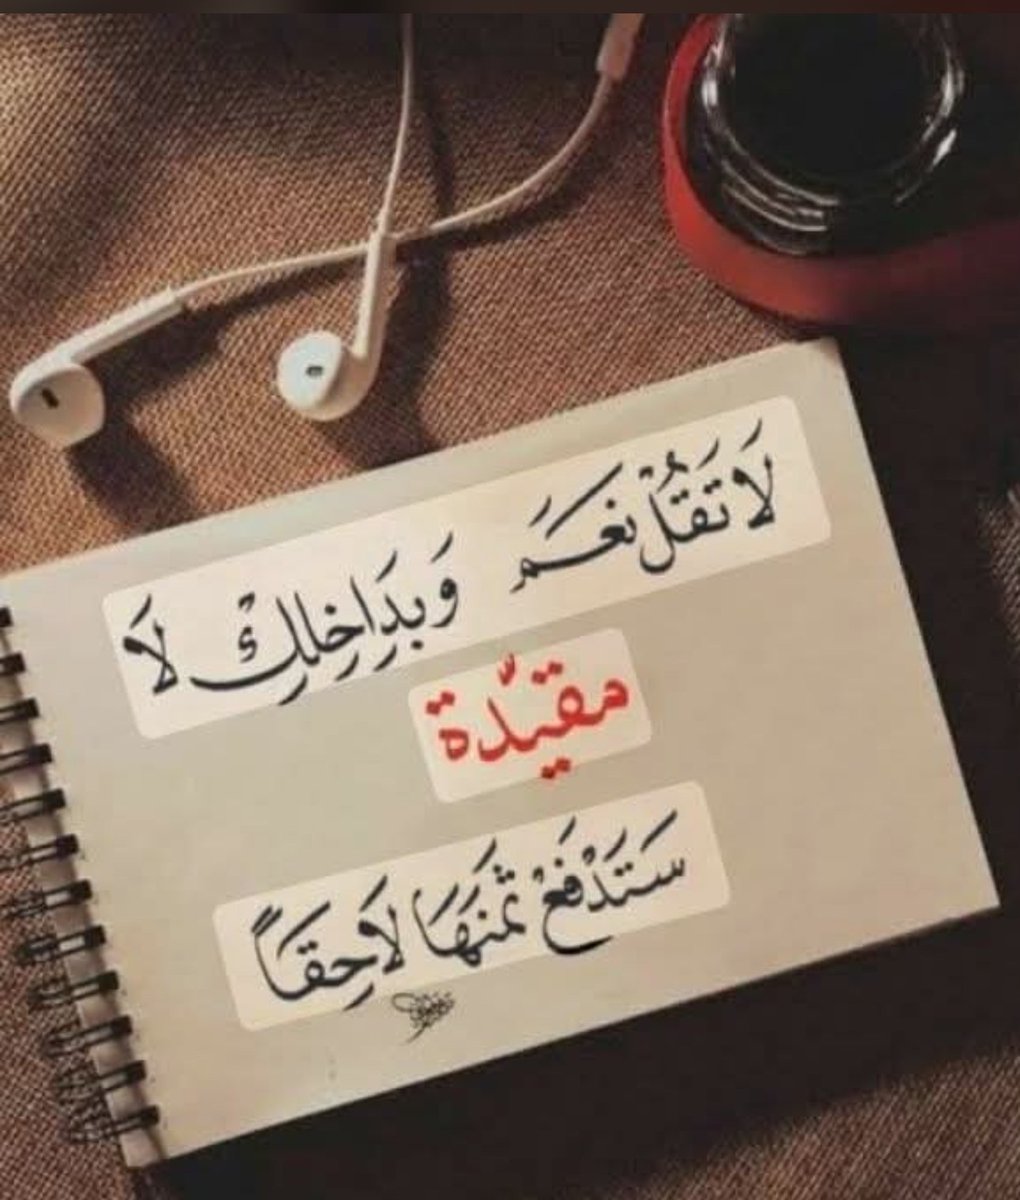 لَا تَقُلْ نَعَم وَبدَاخِلِكْ لَا
مقيّدة
سَتَدْفَعْ ثَمَنَهَا لَاحِقَاً